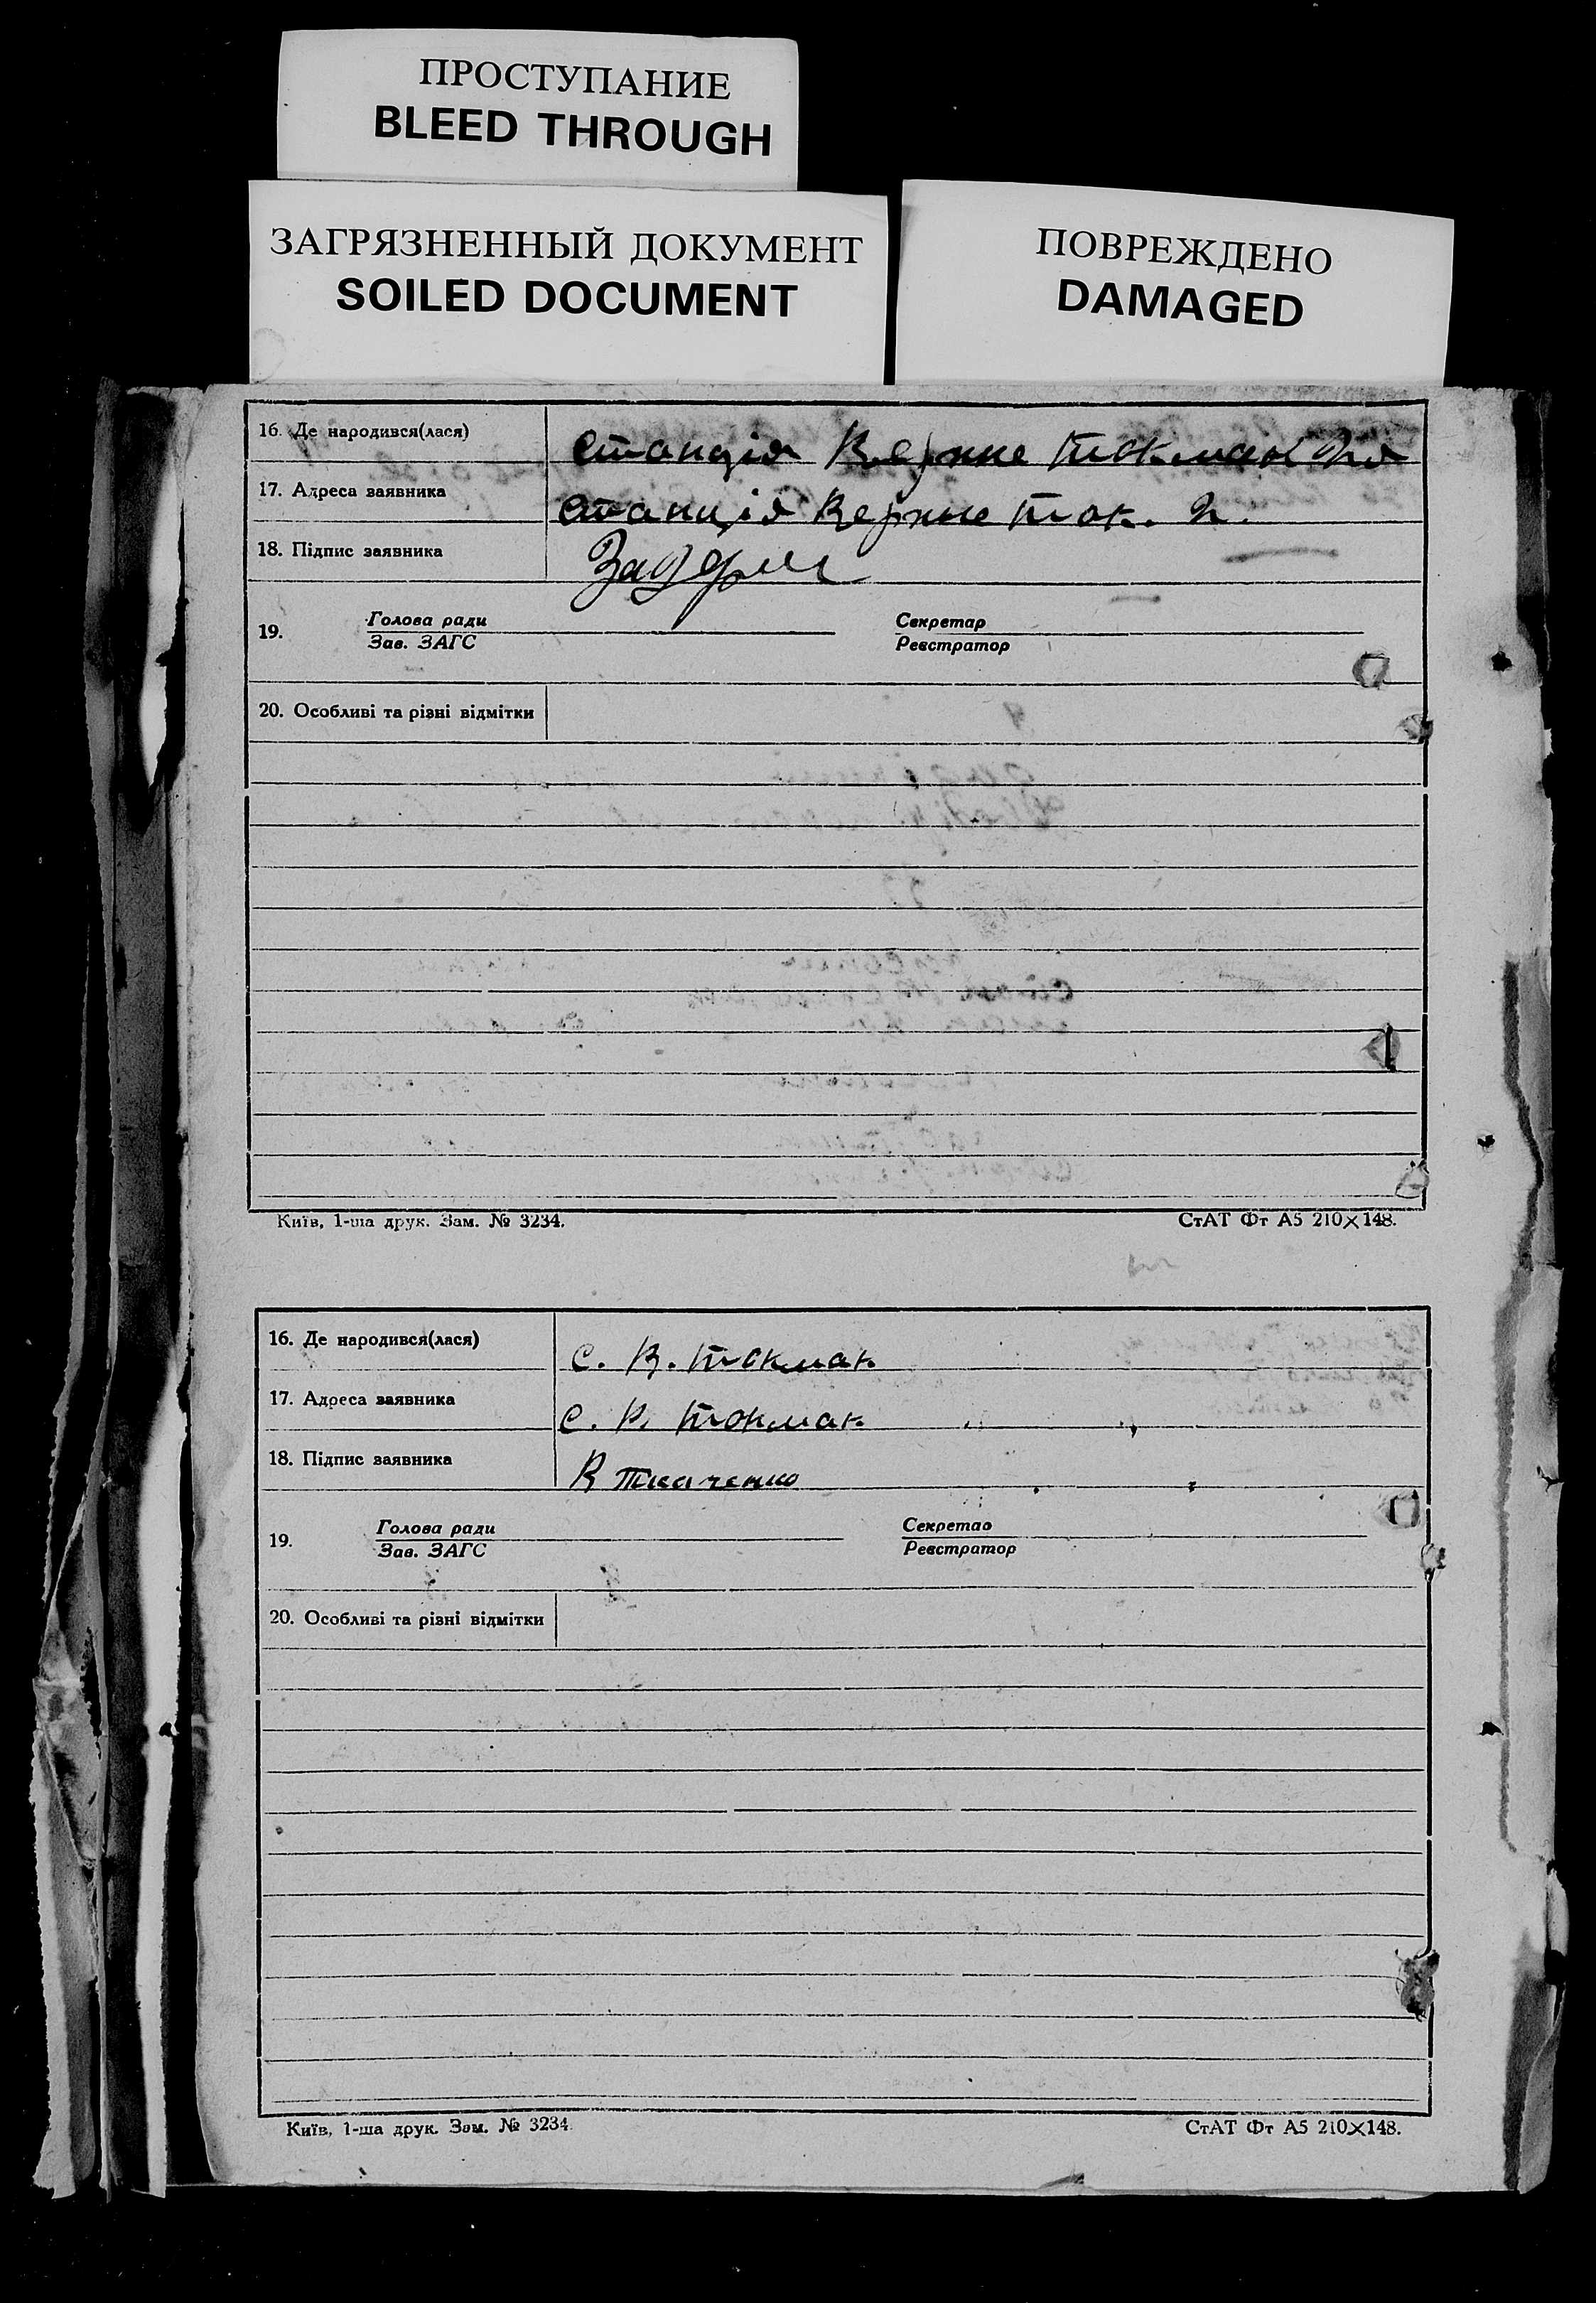 ПРОСТУПАНИЕ
BLEED THROUGH
ЗАГРЯЗНЕННЫЙ ДОКУМЕНТ
SOILED DOCUMENT
ПОВРЕЖДЕНО
DAMAGED
16. Де народився(лася) станція Верхне Токмак
17. Адреса заявника станція Верхне Ток.
18. Підпис заявника
19. Голова ради Секретар
Зав. ЗАГС Реєстратор
20. Особливі та різні відмітки
Київ, 1-ша друк. Зам. № 3234. СтАТ Фт А5 210×148.
16. Де народився(лася) с. В. Токмак
17. Адреса заявника с. В. Токмак
18. Підпис заявника В Ткаченко
19. Голова ради Секретар
Зав. ЗАГС Реєстратор
20. Особливі та різні відмітки
Київ, 1-ша друк. Зам. № 3234 СтАТ Фт А5 210×148.